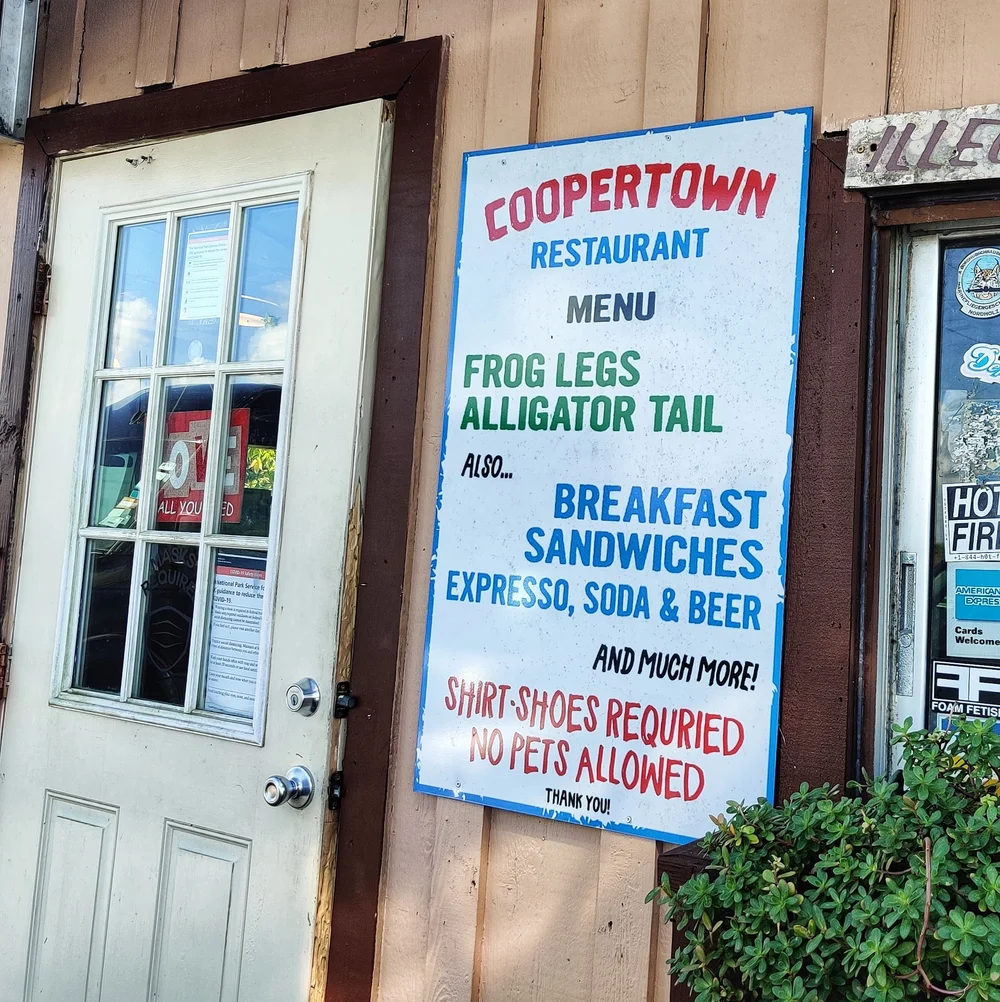 COOPERTOWN
RESTAURANT
MENU
FROG LEGS
ALLIGATOR TAIL
ALSO...
BREAKFAST
SANDWICHES
EXPRESSO, SODA & BEER
AND MUCH MORE!
SHIRT-SHOES REQURIED
NO PETS ALLOWED
THANK YOU!
ALL YOU
National Park Service
guidance to reduce the
ILLEG
HOT
FIR
AMERICAN
EXPRESS
Cards
Welcome
FOAM FETIS